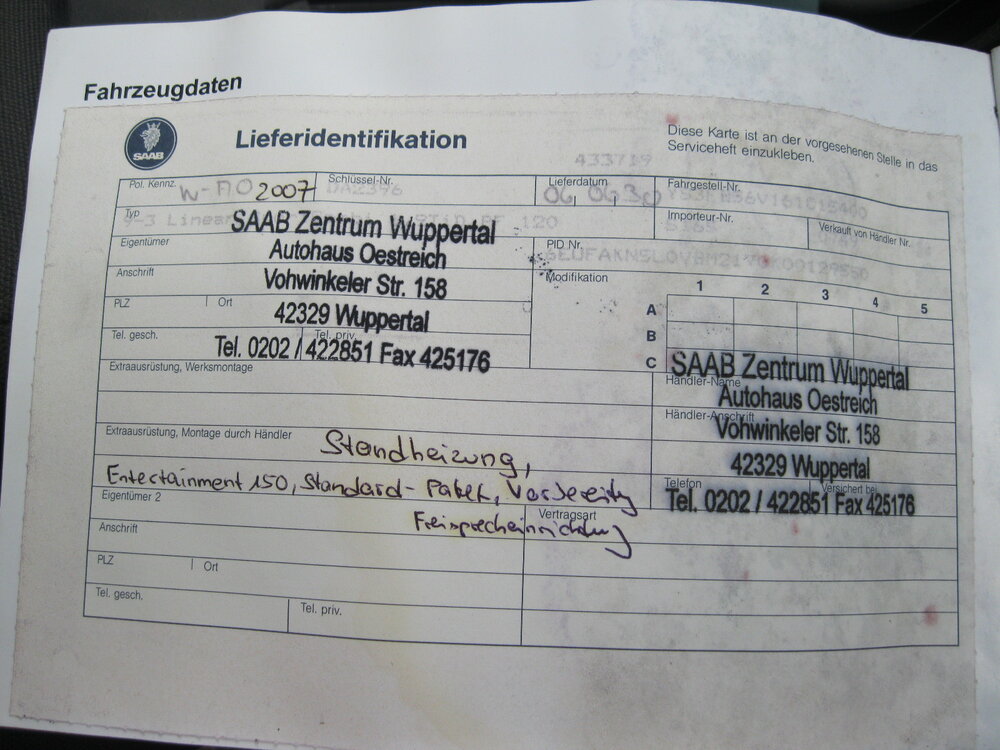 Fahrzeugdaten
SAAB
Lieferidentifikation
Diese Karte ist an der vorgesehenen Stelle in das
Serviceheft einzukleben.
433719
Pol. Kennz.
2007
Schlüssel-Nr.
Lieferdatum
Fahrgestell-Nr.
Typ
9-3 Linear
120
Importeur-Nr.
Verkauft von Händler Nr.
SAAB Zentrum Wuppertal
Eigentümer
Autohaus Oestreich
PID Nr.
Anschrift
Vohwinkeler Str. 158
Modifikation
1 2 3 4 5
PLZ Ort
42329 Wuppertal
A
Tel. gesch. Tel. priv.
Tel. 0202 / 422851 Fax 425176
B
C
Extraausrüstung, Werksmontage
SAAB Zentrum Wuppertal
Händler-Name
Autohaus Oestreich
Händler-Anschrift
Vohwinkeler Str. 158
42329 Wuppertal
Telefon Versichert bei
Tel. 0202 / 422851 Fax 425176
Extraausrüstung, Montage durch Händler
Standheizung,
Entertainment 150, Standard-Paket, Vorbereitg
Freisprecheinrichtung
Eigentümer 2
Vertragsart
Anschrift
PLZ Ort
Tel. gesch. Tel. priv.